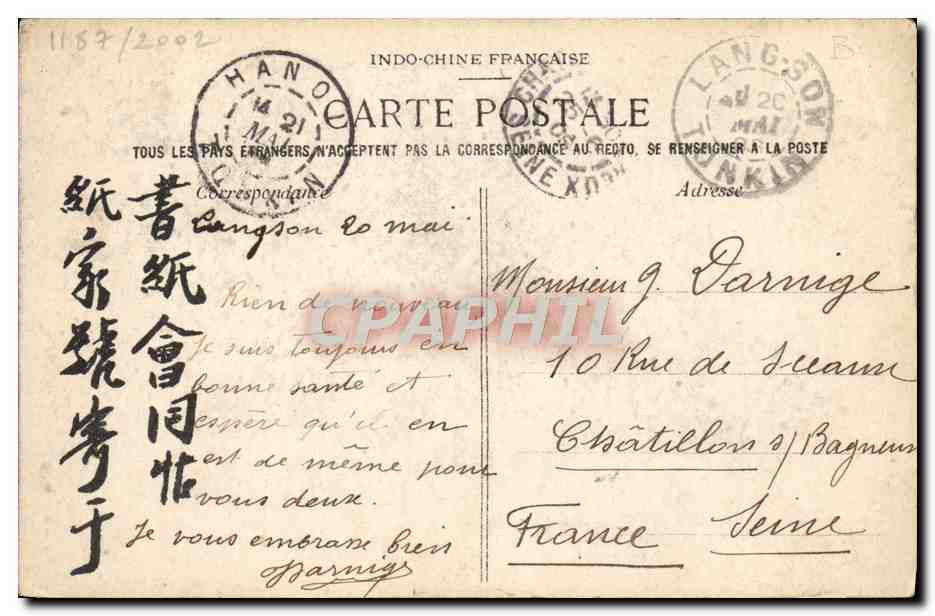 1187/2002
B
INDO-CHINE FRANÇAISE
CARTE POSTALE
TOUS LES PAYS ÉTRANGERS N'ACCEPTENT PAS LA CORRESPONDANCE AU RECTO, SE RENSEIGNER A LA POSTE
HANOI
14 21
MAI
LANG-SON
20
MAI
TONKIN
SEINE
Correspondance
Langson 20 mai
Rien de nouveau
Je suis toujours en
bonne santé et
espère qu'il en
est de même pour
vous deux.
Je vous embrasse bien
Darnige
Adresse
Monsieur G. Darnige
10 Rue de Sceaux
Châtillon s/ Bagneux
Seine
France
書紙會同帖
紙家號寄于
CPAPHIL